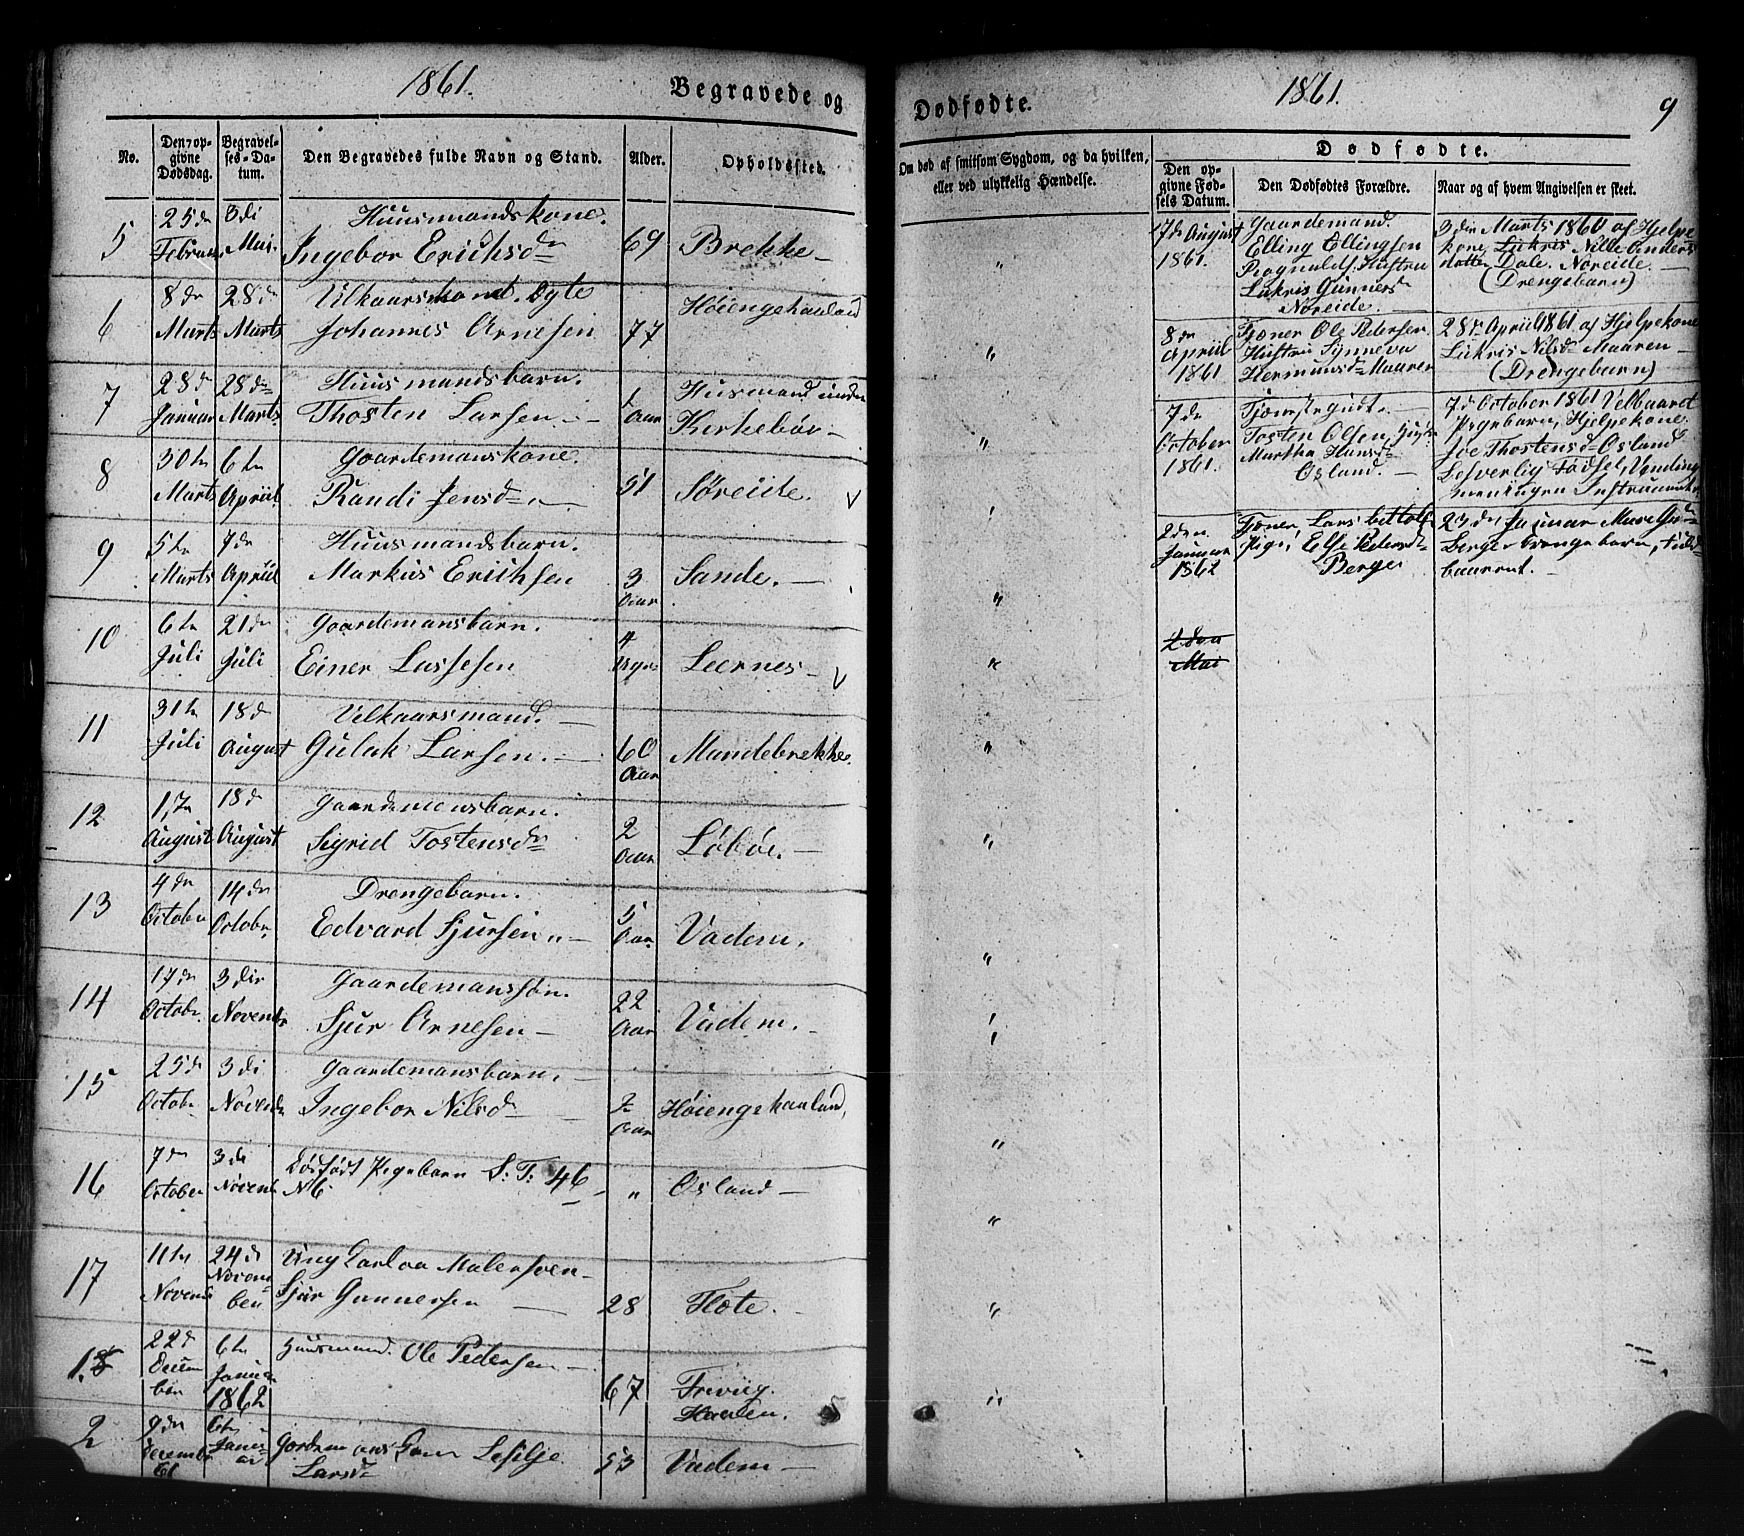 1861.
Begravede og
No.
Den opgivne Dødsdag.
Begravelses-Datum.
Den Begravedes fulde Navn og Stand.
Alder.
Opholdssted.
5 25de Februar 3di Mai Huusmandskone.
Ingebor Erichsd 69 Brekke
6 8de Marts 28de Marts
Johannes Arnesen 77 Høiengehauland
7 28de Januar 28de Marts Huusmandsbarn.
Thosten Larsen 1 Aar Husmand under
Kirkebøe
8 30te Marts 6te Apriil Gaardemanskone.
Randi Jensd 51 Søreide. V
9 5te Marts 7de Apriil Huusmandsbarn.
Markus Erichsen 3 Aar Sande.
10 6te Juli 21de Juli Gaardemansbarn.
Einer Lassesen 4 Leernes V
11 31te Juli 18de August Velkaarsmand.
Gulak Larsen. 60 Aar Mandebrekke.
12 17de August 18de August Gaardemansbarn.
Sigrid Tostensd 2 Aar Løbøe.
13 4de October 14de October Drengebarn.
Edvard Sjursen 5 Aar Vadem.
14 17de October 3die November Gaardemanssøn.
Sjur Arnesen 22 Aar Vadem.
15 25de October 3di November Gaardemansbarn.
Ingebor Nilsd 2 Aar Høiengehauland
16 7de October 3di November Dødfødt Pigebarn S: T: 46
N6 " Osland
17 11te November 24de November
Sjur Gunnersen 28 Flote.
18 22de December 6te Januar 1862 Huusmand. Ole Pedersen 67
Haalen.
2 9de December 61 6te Januar
Larsd 53 Vadem
Dødfødte.
1861.
9
Om død af smitsom Sygdom, og da hvilken,
eller ved ulykkelig Hændelse.
Dødfødte.
Den opgivne Fødsels Datum.
Den Dødfødtes Forældre.
Naar og af hvem Angivelsen er skeet.
17de August 1861. Gaardemand.
Elling Ellingsen
Ragnulds Hustru
Lukris Gunners
Nøreide.
3die Marts 1860 af Hjelpe
kone Lukris Nille Anders
datter Dale. Nøreide.
(Drengebarn)
8de Apriil 1861 Tjener Ole Pedersen.
Hustru Synneva
Hermunsd Maaren
28de Apriil 1861 af Hjelpekone
Lukris Nilsd Maaren
(Drengebarn)
7de October 1861. Tjenstegudt
Tosten Olsen
Martha Hansd
Osland.
7de October 1861 Velbaaret
Pigebarn, Hjelpekone.
Thostensd Osland
besverlig Fødsel, Vending
2den Januar 1862 Tjener Lars
Pige Else Pedersd
Berge
23de Januar
Berge Drengebarn,
2den
Mai